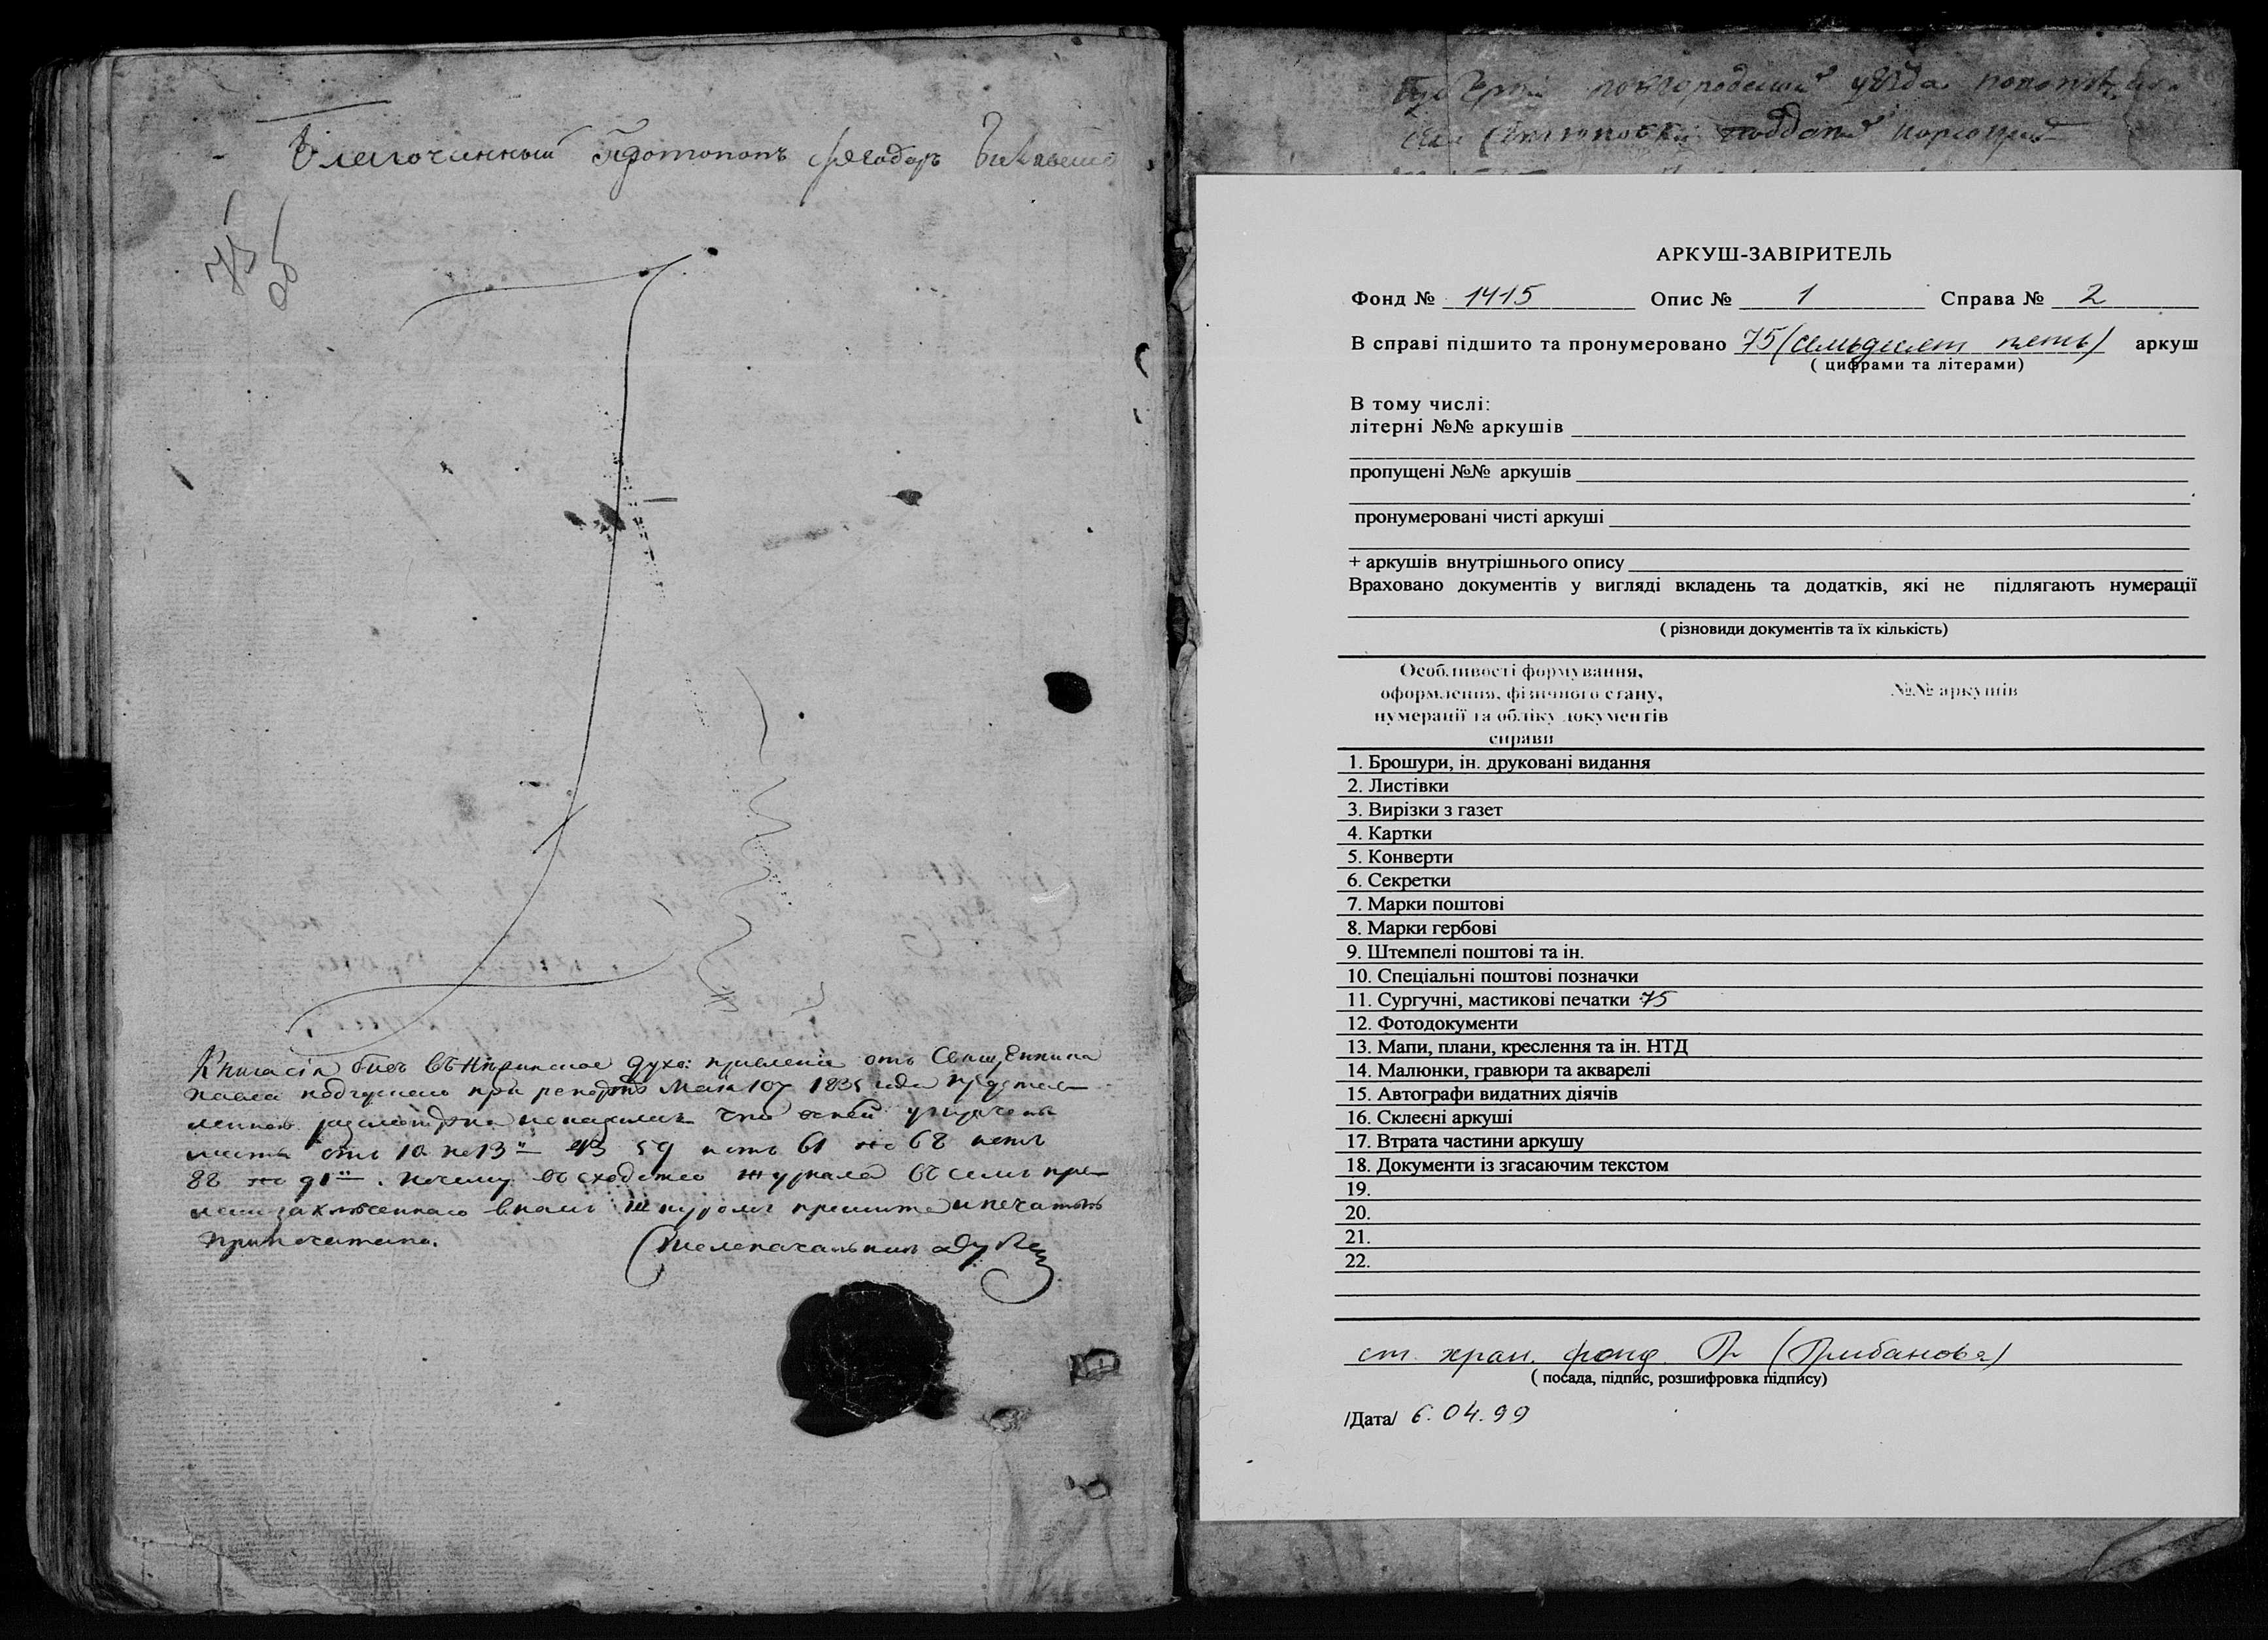 Благочинный Протопопъ Феодоръ
75
об
Книга сія бывъ въ духо: правленіе отъ Священника
Павла при репортѣ Мая 10 1835 года представ-
ленною что оной утрачены
листы отъ 10 по 13й 43 59 потъ 61 по 68 потъ
88 по 91й. почему журнала въ семъ пра-
шнуромъ и печатью
припечатана. Столоначальникъ
уѣзда
АРКУШ-ЗАВІРИТЕЛЬ
Фонд № 1415 Опис № 1 Справа № 2
В справі підшито та пронумеровано 75 (семьдесят пять) аркуш
( цифрами та літерами)
В тому числі:
літерні №№ аркушів
пропущені №№ аркушів
пронумеровані чисті аркуші
+ аркушів внутрішнього опису
Враховано документів у вигляді вкладень та додатків, які не підлягають нумерації
( різновиди документів та їх кількість)
Особливості формування,
оформлення, фізичного стану,
нумерації та обліку документів
справи
№№ аркушів
1. Брошури, ін. друковані видання
2. Листівки
3. Вирізки з газет
4. Картки
5. Конверти
6. Секретки
7. Марки поштові
8. Марки гербові
9. Штемпелі поштові та ін.
10. Спеціальні поштові позначки
11. Сургучні, мастикові печатки 75
12. Фотодокументи
13. Мапи, плани, креслення та ін. НТД
14. Малюнки, гравюри та акварелі
15. Автографи видатних діячів
16. Склеєні аркуші
17. Втрата частини аркушу
18. Документи із згасаючим текстом
19.
20.
21.
22.
ст. хран. фонд. (Грибанова)
( посада, підпис, розшифровка підпису)
/Дата/ 6.04.99